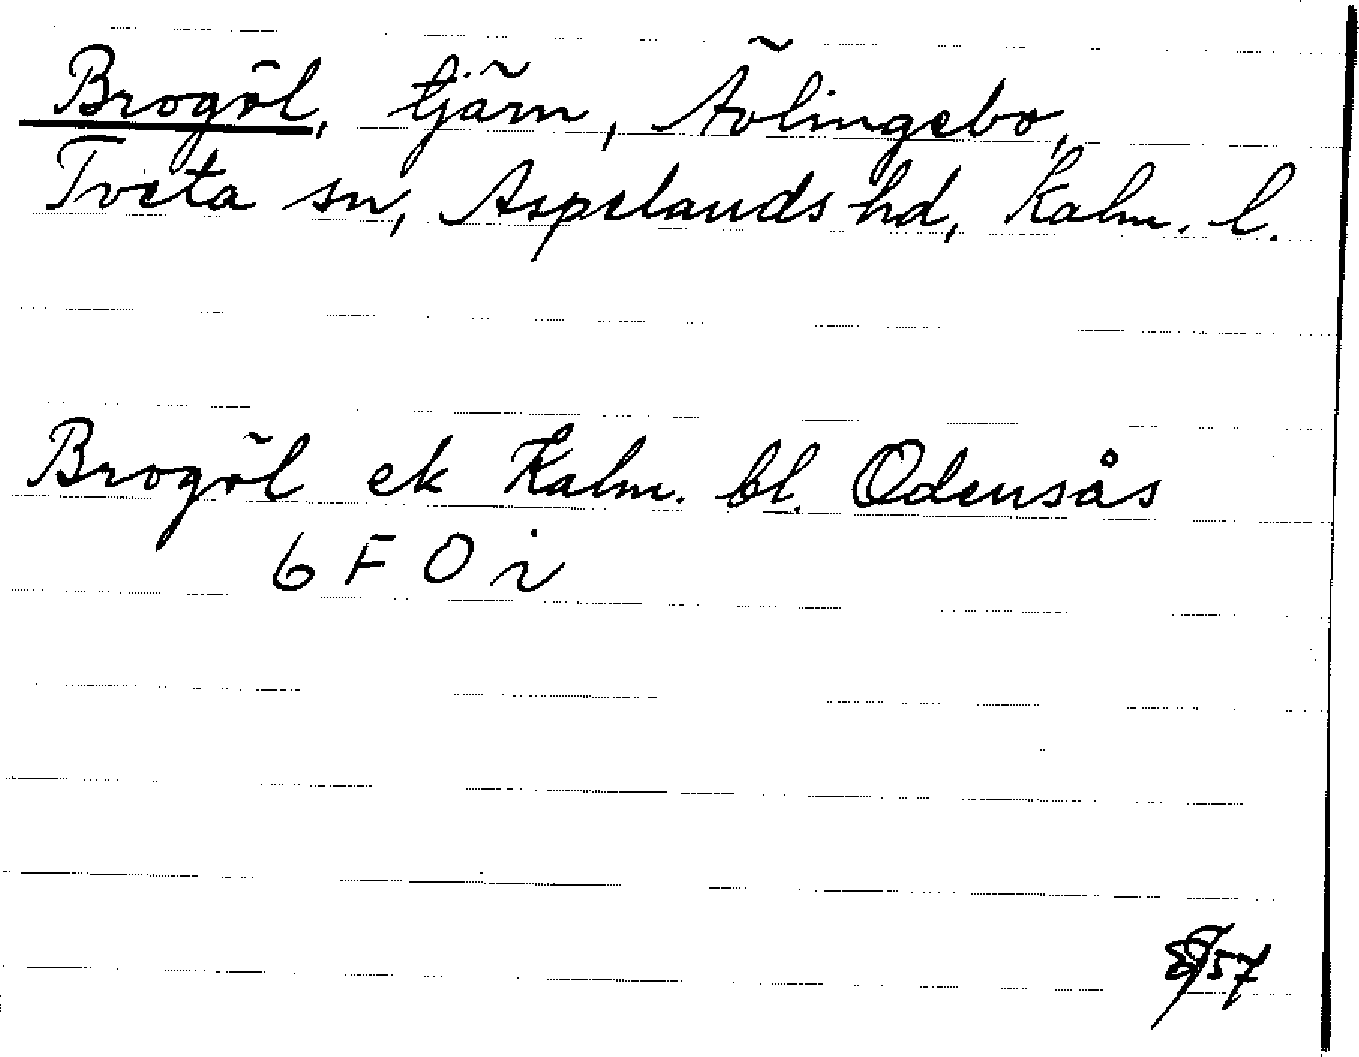 Brogöl, tjärn, Ävlingebo,
Tveta sn, Aspelands hd, Kalm. l.
Brogöl ek Kalm. bl. Odensås
6 F O i